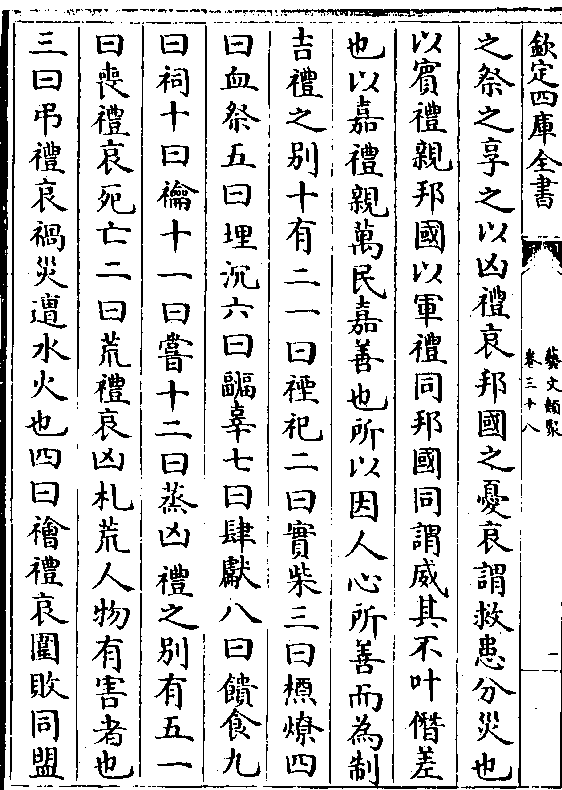 欽定四庫全書
藝文類聚
卷三十八
二
之祭之享之以凶禮哀邦國之憂哀謂救患分災也
以賓禮親邦國以軍禮同邦國同謂威其不叶僭差
也以嘉禮親萬民嘉善也所以因人心所善而為制
吉禮之别十有二一曰禋祀二曰實柴三曰槱燎四
曰血祭五曰埋沉六曰疈辜七曰肆獻八曰饋食九
曰祠十曰禴十一曰嘗十二曰蒸凶禮之别有五一
曰喪禮哀死亡二曰荒禮哀凶札荒人物有害者也
三曰弔禮哀禍災遭水火也四曰襘禮哀圍敗同盟